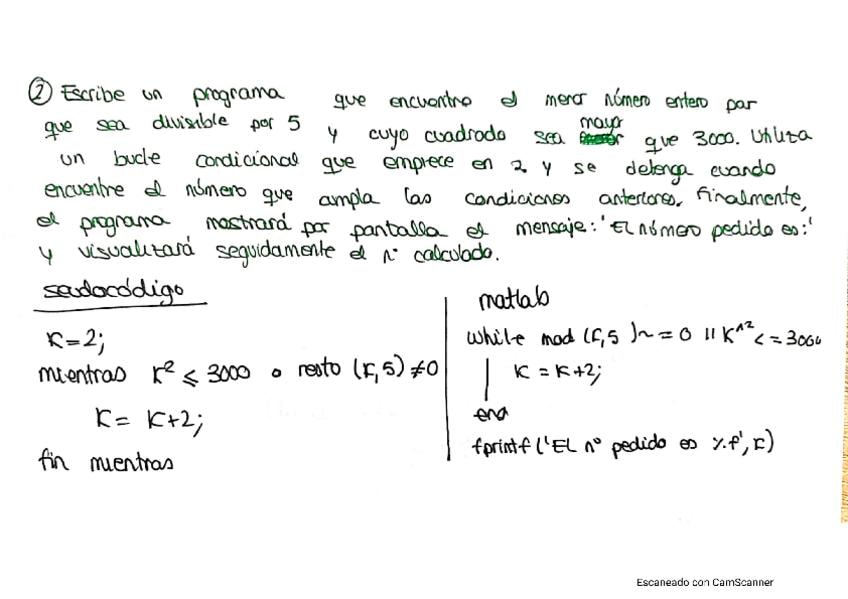 ② Escribe un programa que encuentre el menor número entero par
que sea divisible por 5 y cuyo cuadrado sea mayor que 3000. Utiliza
un bucle condicional que empiece en 2 y se detenga cuando
encuentre el número que cumpla las condiciones anteriores. Finalmente,
el programa mostrará por pantalla el mensaje: 'El número pedido es:'
y visualizará seguidamente el nº calculado.
seudocódigo
K=2;
mientras K² ≤ 3000 o resto (K,5) ≠0
K = K+2;
fin mientras
matlab
while mod (K,5) ~= 0 || K^2 <= 3000
K = K+2;
end
fprintf ('El nº pedido es %.f', K)
Escaneado con CamScanner